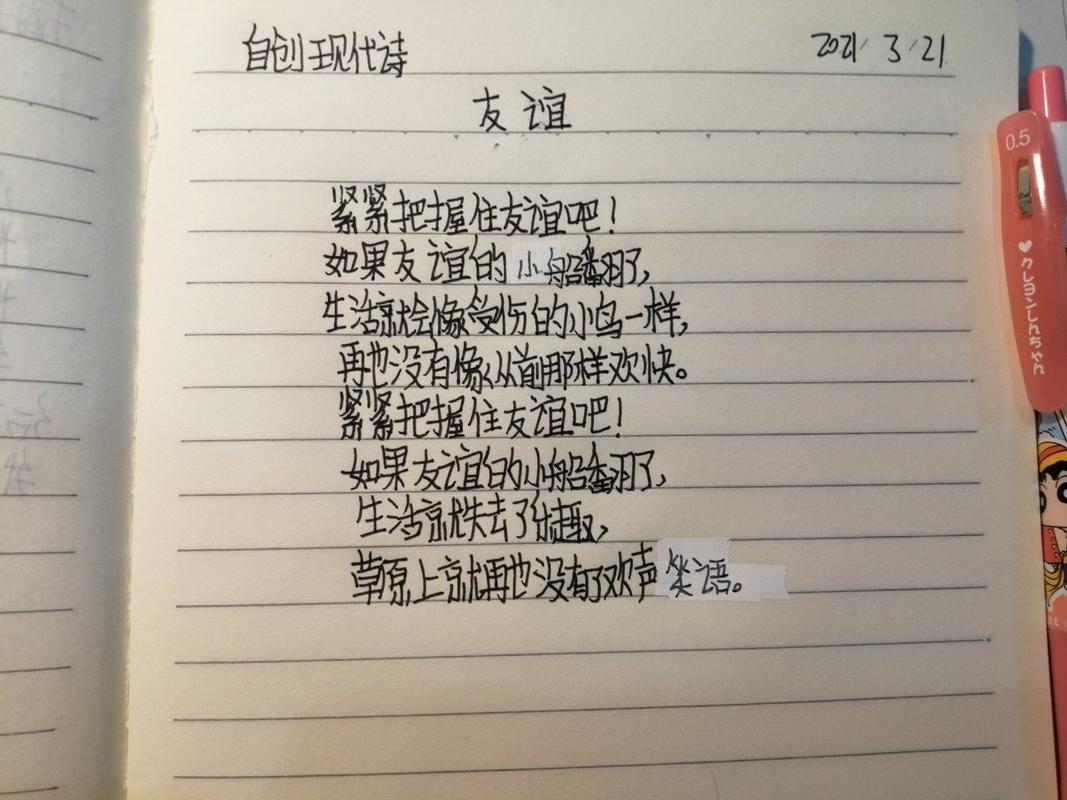 自创现代诗 2021/3/21
友谊
紧紧把握住友谊吧！
如果友谊的小船翻了，
生活就会像受伤的小鸟一样，
再也没有像从前那样欢快。
紧紧把握住友谊吧！
如果友谊的小船翻了，
生活就失去了乐趣，
草原上就再也没有了欢声笑语。
0.5
♥クレヨンしんちゃん